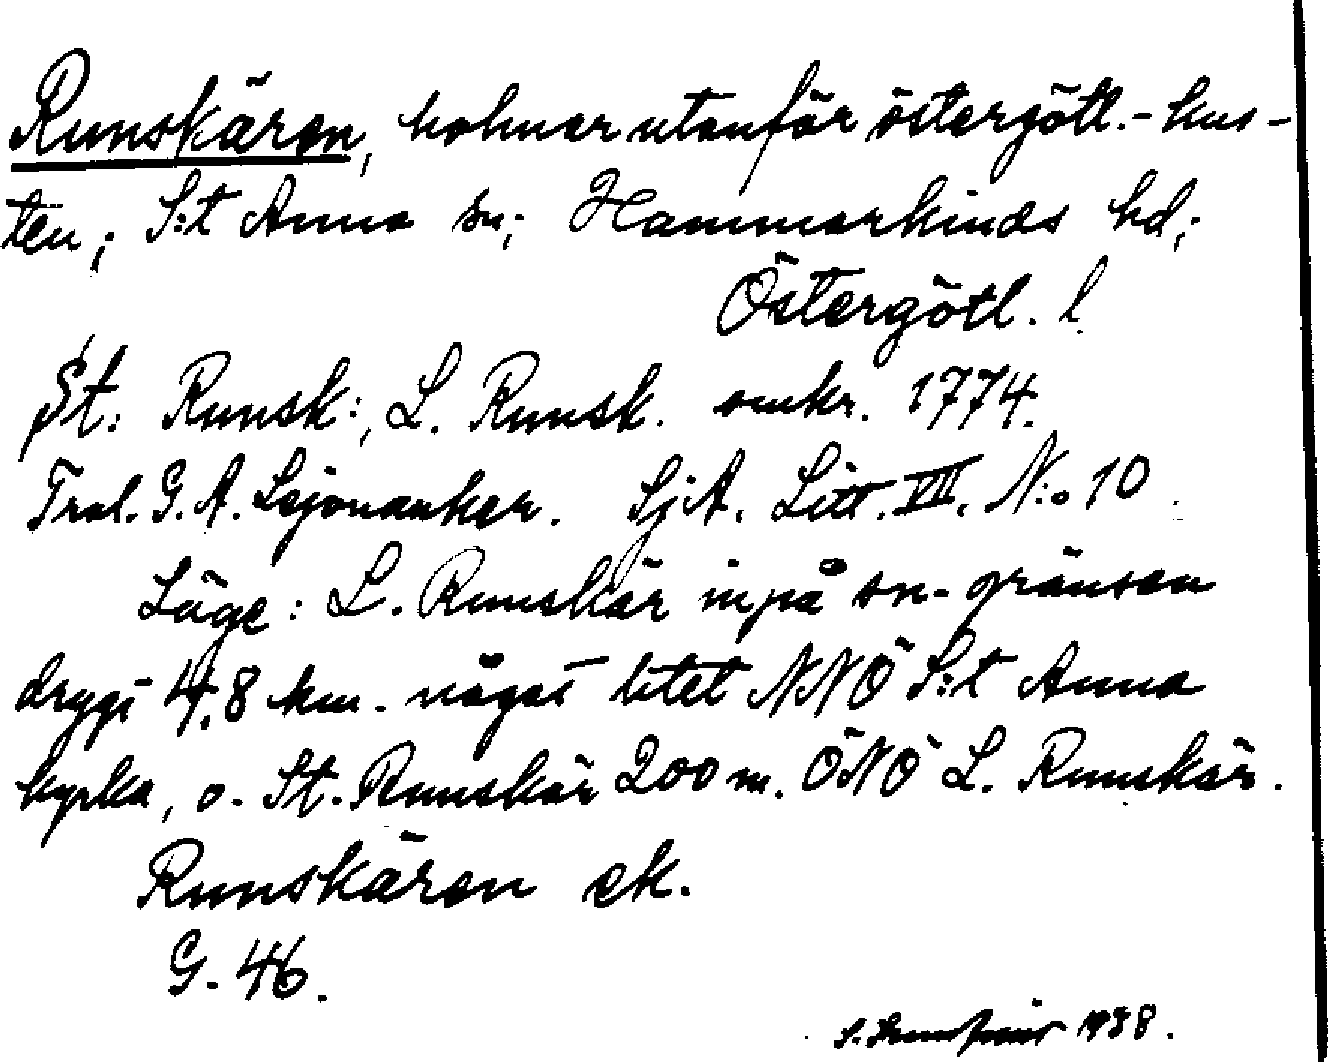 Runskären, holmar utanför östergötl.-kus-
ten; S:t Anna sn; Hammarkinds hd;
Östergötl. l
St. Runsk:, L. Runsk. omkr. 1774.
Trol. G. A. Lejonanker. SjA. Litt. VIII. N:o 10.
Läge: L. Runskär inpå sn-gränsen
drygt 4,8 km. något litet NNÖ S:t Anna
kyrka, o. St. Runskär 200 m. ÖNÖ L. Runskär.
Runskären ek.
G. 46.
1938.